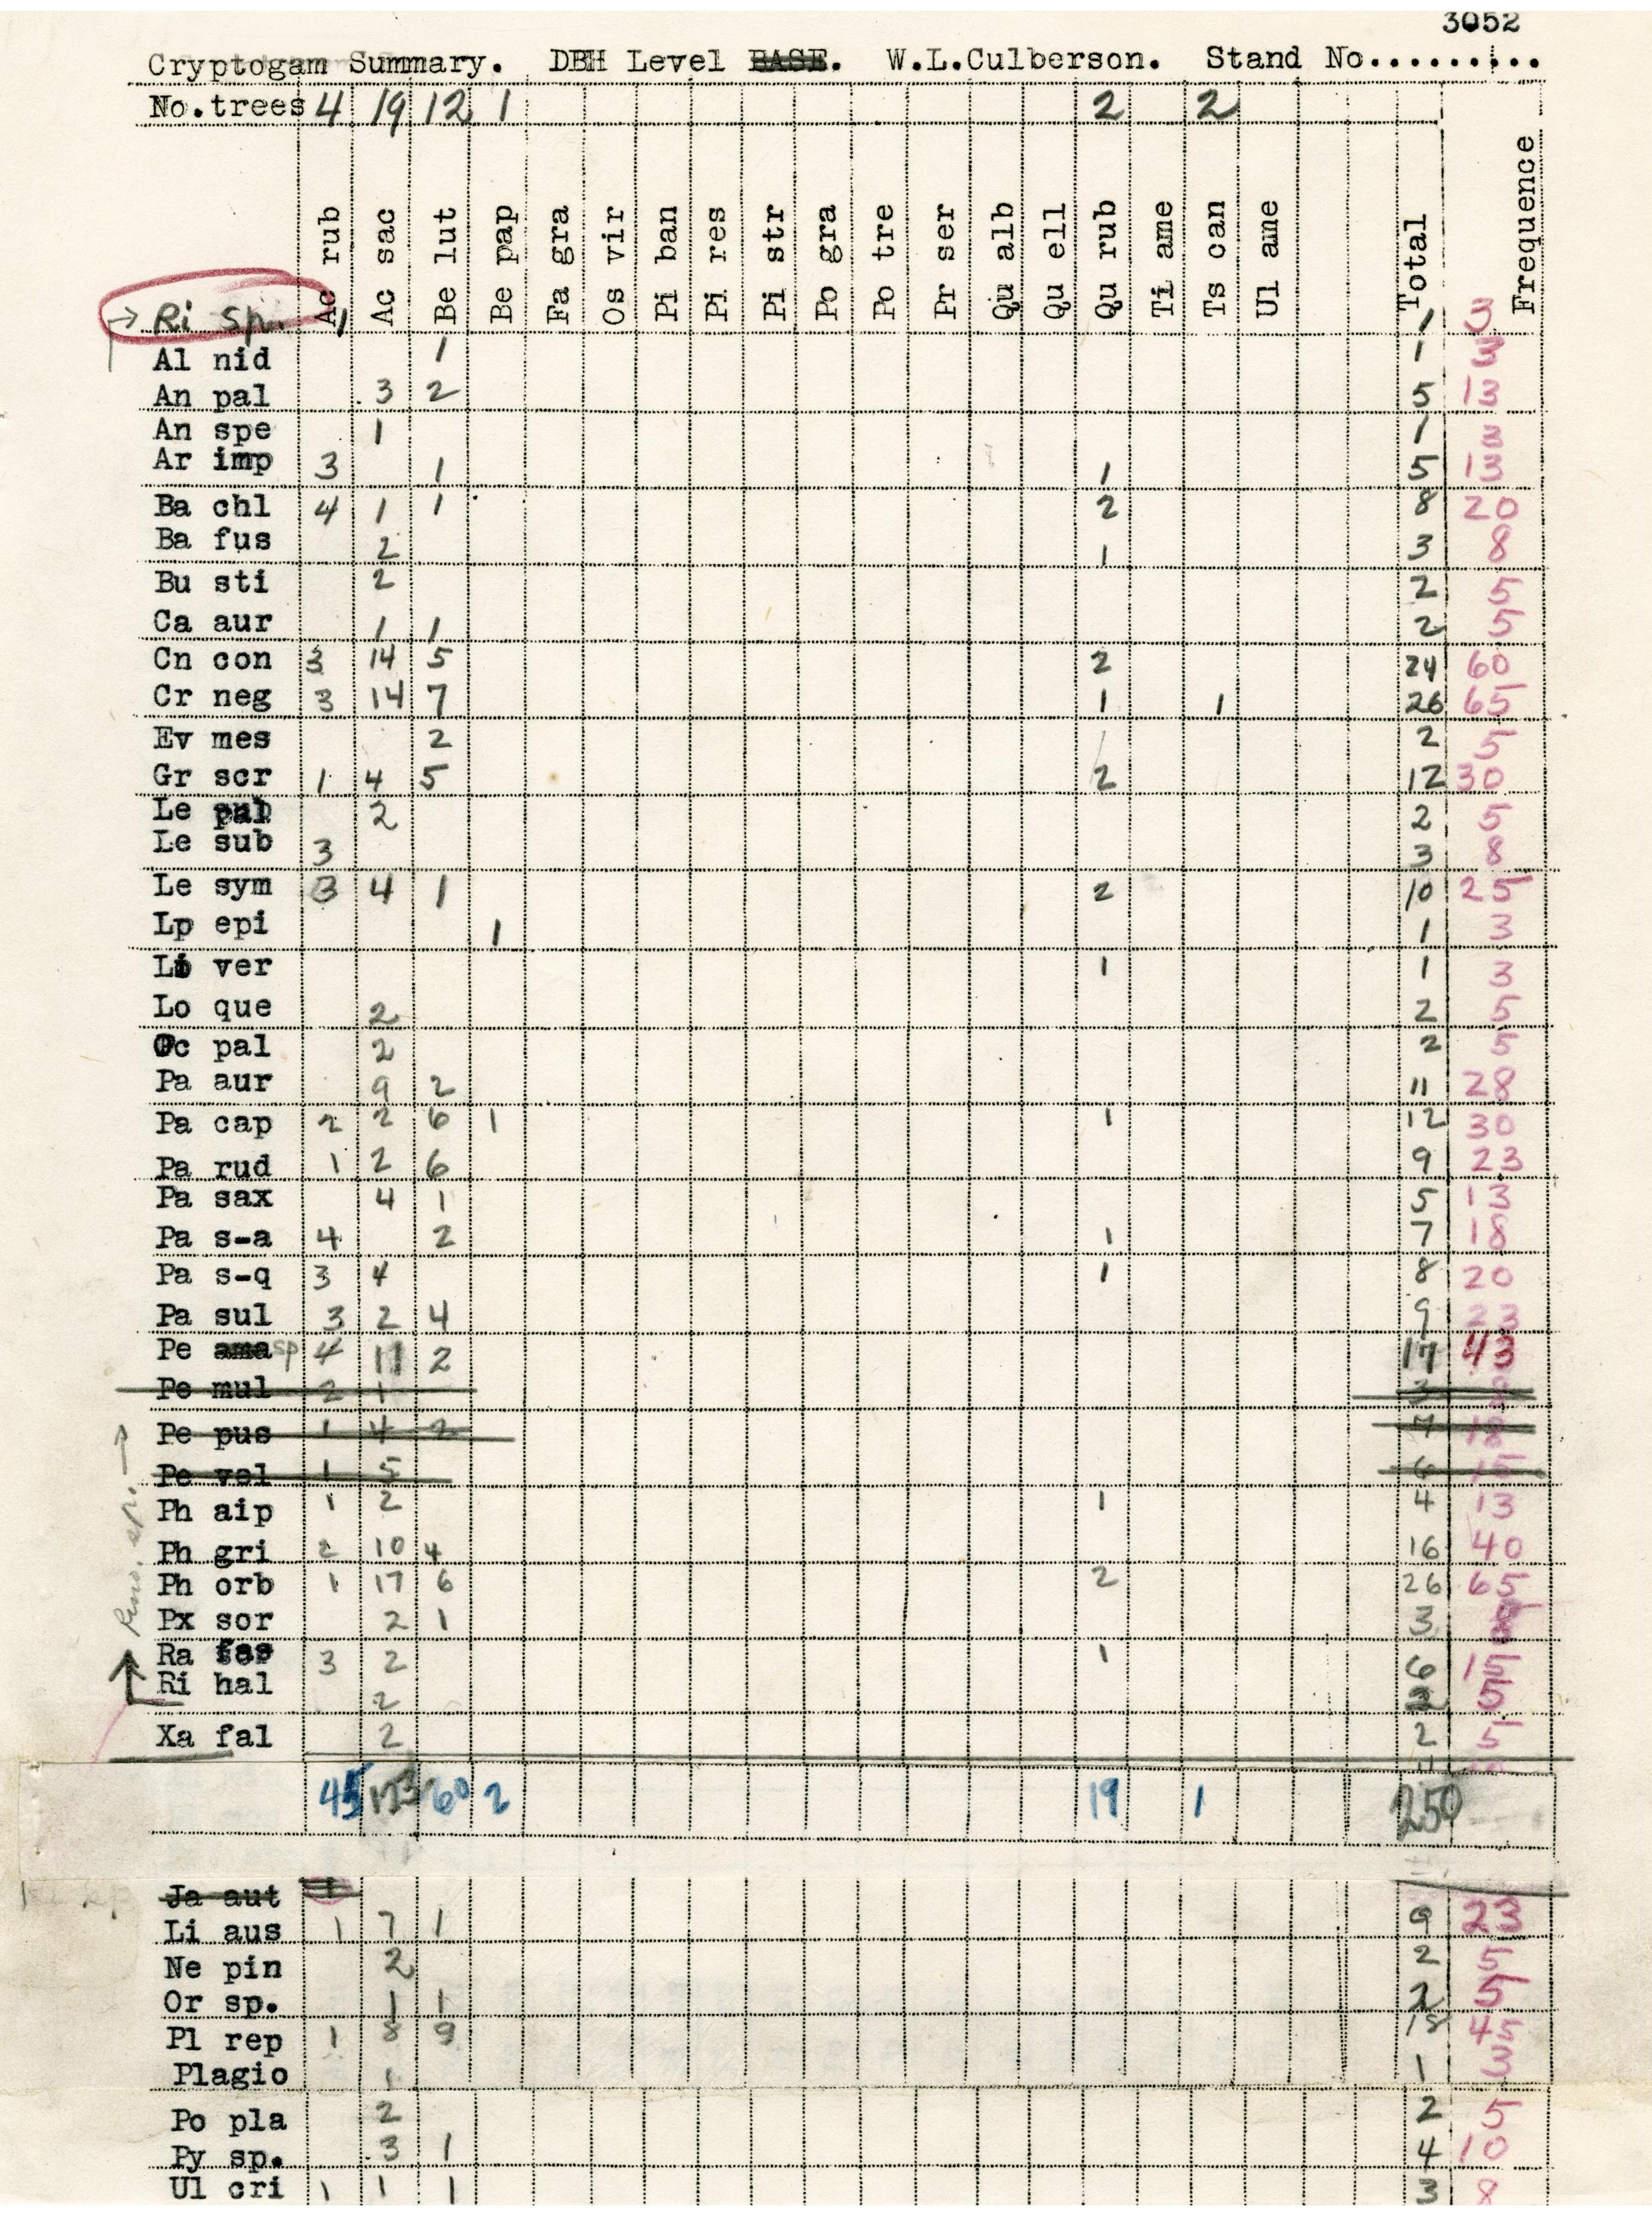 3052
Cryptogam Summary. DBH Level BASE. W.L.Culberson. Stand No.........
No.trees 4 19 12 1 2 2
Ac rub Ac sac Be lut Be pap Fa gra Os vir Pi ban Pi res Pi str Po gra Po tre Pr ser Qu alb Qu ell Qu rub Ti ame Ts can Ul ame Total Frequence
→ Ri sp. 1 1 3
Al nid 1 1 3
An pal 3 2 5 13
An spe 1 1 3
Ar imp 3 1 1 5 13
Ba chl 4 1 1 2 8 20
Ba fus 2 1 3 8
Bu sti 2 2 5
Ca aur 1 1 2 5
Cn con 3 14 5 2 24 60
Cr neg 3 14 7 1 1 26 65
Ev mes 2 2 5
Gr scr 1 4 5 2 12 30
Le 2 2 5
Le sub 3 3 8
Le sym 3 4 1 2 10 25
Lp epi 1 1 3
Li ver 1 1 3
Lo que 2 2 5
Oc pal 2 2 5
Pa aur 9 2 11 28
Pa cap 2 2 6 1 1 12 30
Pa rud 1 2 6 9 23
Pa sax 4 1 5 13
Pa s-a 4 2 1 7 18
Pa s-q 3 4 1 8 20
Pa sul 3 2 4 9 23
Pe ama sp 4 11 2 17 43
Pe mul 2 1 3
Pe pus 1 4 2 7 18
Pe vel 1 5 6 15
Ph aip 1 2 1 4 13
Ph gri 2 10 4 16 40
Ph orb 1 17 6 2 26 65
Px sor 2 1 3 8
Ra fas 3 2 1 6 15
Ri hal 2 2 5
Xa fal 2 2 5
45 123 60 2 19 1 250
Ja aut
Li aus 1 7 1 9 23
Ne pin 2 2 5
Or sp. 1 1 2 5
Pl rep 1 8 9 18 45
Plagio 1 1 3
Po pla 2 2 5
Py sp. 3 1 4 10
Ul cri 1 1 1 3 8